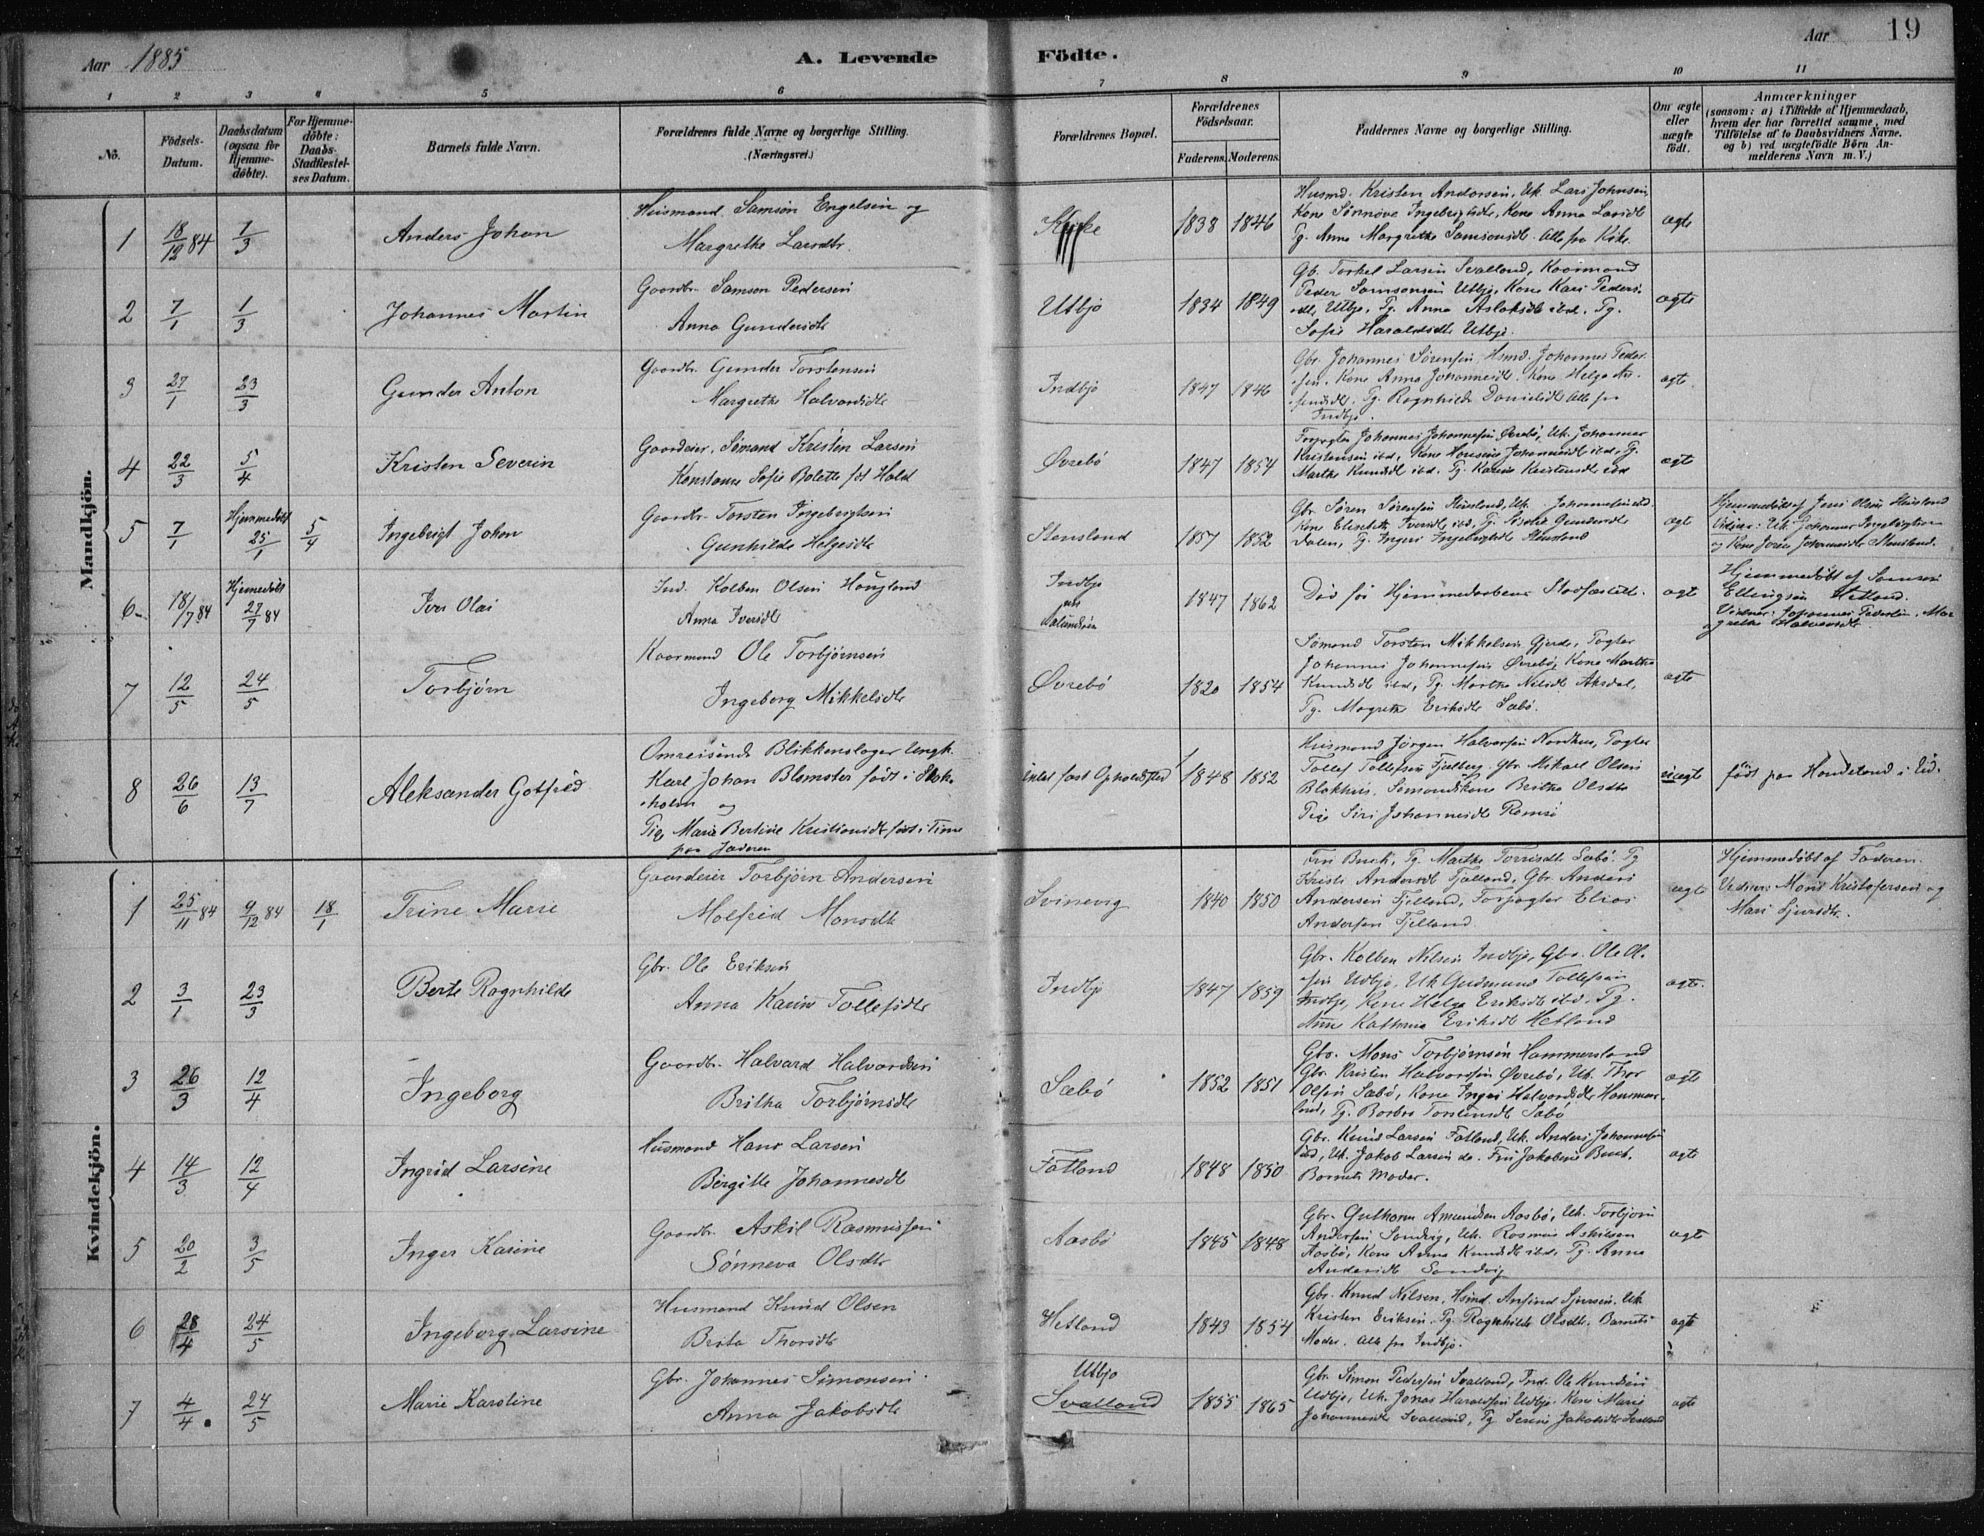 Aar 1885
A. Levende Födte.
Aar 19
1 2 3 4 5 6 7 8 9 10 11
No.
Födsels-Datum.
Daabsdatum (ogsaa for Hjemme-döbte).
For Hjemme-döbte: Daabs-Stadfæstel-ses Datum.
Barnets fulde Navn.
Forældrenes fulde Navne og borgerlige Stilling. (Næringsvei.)
Forældrenes Bopæl.
Forældrenes Födselsaar.
Faderens. Moderens.
Faddernes Navne og borgerlige Stilling.
Om ægte eller uægte födt.
Anmærkninger
(saasom: a) i Tilfælde af Hjemmedaab, hvem der har forrettet samme, med Tilföielse af to Daabsvidners Navne. og b) ved uægtefödte Börn An-melderens Navn m. V.)
Mandkjön.
1 18/12 84 1/3 Anders Johan
Husmand Samson Engelsen og
Margrethe Larsdtr.
1838 1846
Husmd. Kristen Andersen, Uk. Lars Johnsen,
Kone Sønnøve Ingebrigtsdtr, Kone Anna Larsdt
Pg. Anna Margrethe Samsonsdt. Alle fra
ægte
2 7/1 1/3 Johannes Martin
Gaardbr. Samson Pedersen
Anna Gundersdtr
Utbjo 1834 1849
Gb. Torkel Larsen Svalland, Kaarmand
Peder Samsonsen Utbjo, Kone Kari Peders-
dtr, Utbjo, Pg. Anna Aslaksdt ibd. Pg.
Sofie Haraldsdtr Utbjo.
ægte
3 27/1 23/3 Gunder Anton
Gaardbr. Gunder Torstensen
Margrethe Halvordsdtr
Indbjo 1847 1846
Gbr. Johannes Sørensen, Hsmd. Johannes Peder-
sen, Kone Anna Johannesdt. Kone Helga
Pg. Ragnhilde Danielsdt Alle fra
Indbjo.
ægte
4 22/3 5/4 Kristen Severin
Gaardeier, Sømand Kristen Larsen
Konstanse Sofie Bolette født Hald
Øvrebø 1847 1854
Forpagter Johannes Johannesen Øvrebø, Uk. Johannes
Kristensen ibd, Kone Johannesdt ibd, Pg.
Marthe Knudsdt ibd. Pg. Karine Kristensdt ibd
ægte
5 7/1 Hjemmedøbt 25/1 5/4 Ingebrigt Johan
Gaardbr. Torsten Ingebrigtsen
Gunhilde Helgesdtr
Stensland 1857 1852
Gbr. Søren Sørensen Stensland, Uk. Johannesen ibd.
Kone Elisabeth Iversdt ibd, Pg. Gundersdtr
Dalen, Pg. Ingeri Ingebrigtsdt Stensland
ægte
Hjemmedøbt af Jens Olsen Stensland
Vidner: Uk. Johannes Ingebrigtsen
og Kone Johannesdtr Stensland.
6 18/7 84 Hjemmedøbt 27/7 84 Iver Olai
Ind. Kolben Olsen Haugland
Anna Iversdtr
Indbjo
1847 1862
Død før Hjemmedaabens Stadfæstelse.
ægte
Hjemmedøbt af Samson
Ellingsen Hetland.
Vidner: Johannes, Mar
grethe Halvorsdtr.
7 12/5 24/5 Torbjørn
Kaarmand Ole Torbjørnsen
Ingeborg Mikkelsdtr
Øvrebø 1820 1854
Sømand Torsten Mikkelsen Gjerde, Pogter
Johannes Johannesen Øvrebø, Kone Marthe
Knudsdt ibd, Pg. Marthe Nilsdt Aksdal,
Pg. Magrethe Eriksdtr Sæbø.
ægte
8 26/6 13/7 Aleksander Gotfred
Omreisende Blikkenslager Ungk.
Karl Johan Blomster født i Stok-
holm og
Pige Marie Bertine Kristiansdt født i Time
paa Jæderen
intet fast Opholdssted 1848 1852
Husmand Jørgen Halvorsen Nordhus, Pogter
Tollef Tollefsen Fjælberg, Gbr. Mikael Olsen
Blokhus, Sømandskone Britha Olsdtr
Pige Siri Johannesdt Romsø
uægte
født paa Hundeland i Eid.
Kvindekjön.
1 25/11 84 9/12 84 18/1 Trine Marie
Gaardeier Torbjørn Andersen
Molfrid Monsdtr
Svinevig 1840 1850
Fru Buck, Pg. Marthe Torrisdt Sæbø. Pg
Kristi Andersdt Fjelland, Gbr. Anders
Andersen Fjelland, Forpagter Elias
Andersen Fjelland.
ægte
Hjemmedøbt af Faderen.
Vidner: Mons Kristofersen og
Mari Sjursdtr.
2 3/1 23/3 Berte Ragnhilde
Gbr. Ole Eriksen
Anna Karine Tollefsdtr
Indbjo 1847 1859
Gbr. Kolben Nilsen Indbjo, Gbr. Ole Ol-
sen Udbjo, Uk. Gudmund Tollefsen
Indbjo, Kone Helga Eriksdt ibd. Pg.
Anne Kathrina Eriksdt Hetland
ægte.
3 26/3 12/4 Ingeborg
Gaardbr. Halvard Halvardsen
Britha Torbjørnsdtr
Sæbø 1852 1851
Gbr. Mons Torbjørnsen Hammersland
Gbr. Kristen Halvordsen Øvrebø, Uk. Thor
Olsen Sæbø, Kone Ingeri Halvordsdtr Hammers-
land, Pg. Barbro Torstensdt Sæbø
ægte
4 14/3 12/4 Ingrid Larsine
Husmand Hans Larsen
Bergitte Johannesdtr
Fatland 1848 1850
Gbr. Knud Larsen Fatland, Uk. Anders Johannesen
ibd, Uk. Jakob Larsen do. Fru Jakobine Buck.
Barnets Moder.
ægte
5 20/2 3/5 Inger Karine
Gaardbr. Askil Rasmussen
Sønneva Olsdtr
Aasbø 1845 1848
Gbr. Guthorm Amundsen Aasbø, Uk. Torbjørn
Andersen Sandvig, Uk. Rasmus Askilsen
Aasbø, Kone Anna Knudsdt ibd, Pg. Anna
Andersdt Sandvig
ægte
6 28/4 24/5 Ingeborg Larsine
Husmand Knud Olsen
Brita Thorsdtr
Hetland 1843 1854
Gbr. Knud Nilsen, Hsmd. Anfind Sjursen, Uk.
Kristen Eriksen, Pg. Ragnhilde Olsdt. Barnets
Moder. Alle fra Indbjo.
ægte
7 4/4 24/5 Marie Karoline
Gbr. Johannes Simonsen
Anna Jakobsdtr
Utbjo
Svalland 1855 1865
Gbr. Simon Pedersen Svalland, Ind. Ole Knudsen
Udbjo, Uk. Jonas Haraldsen Udbjo, Kone Marie
Johannesdt Svalland, Pg. Serine Jakobsdtr
ægte